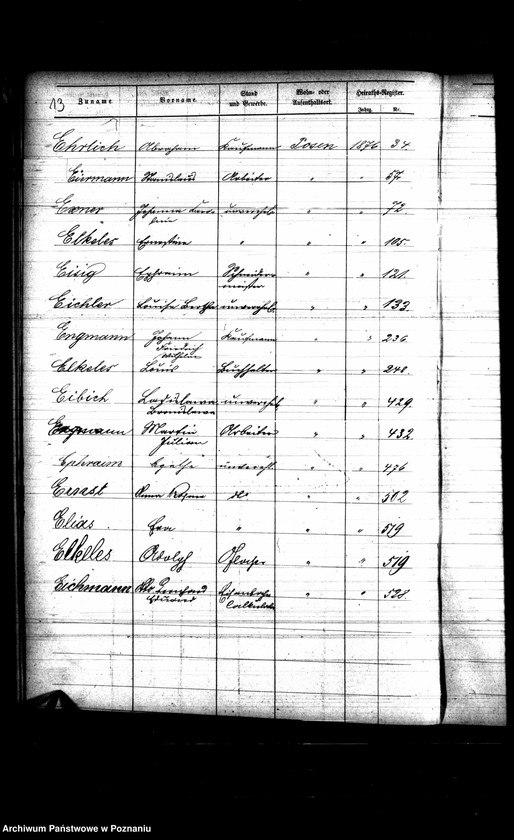 13
Zuname. Vorname. Stand und Gewerbe. Wohn- oder Aufenthaltsort. Heiraths-Register. Jahrg. Nr.
Ehrlich Abraham Kaufmann Posen 1876 34.
Eüxmann Arbeiter " " 57.
Exner Johanna unverehel. " " 72.
Elkeles Ernestine " " " 105.
Eisig Ephraim Schneidermeister " " 121.
Eichler Louise Bertha unverehel. " " 133.
Engmann Johann Friedrich Wilhelm Kaufmann " " 236
Elkeles Louis Buchhalter " " 248.
Eibich Ladislawa Bronislawa unverehel. " " 429.
Martin Julian Arbeiter " " 432.
Ephraim unverehl. " " 476
Ersast Anna do " " 502
Elias Eva " " " 519
Elkeles Adolph " " 519
Eichmann Eduard " " 528.
Archiwum Państwowe w Poznaniu